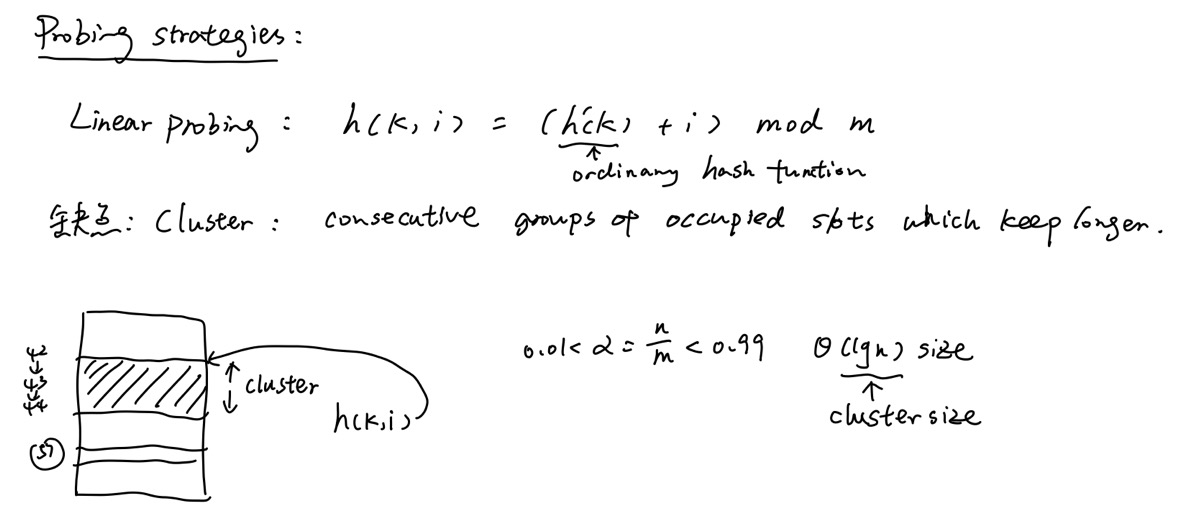 Probing strategies:
Linear probing: h(k, i) = (h'(k) + i) mod m
↑
ordinary hash function
缺点: Cluster: consecutive groups of occupied slots which keep longer.
42
↓
43
↓
44
57
cluster
h(k,i)
0.01 < α = n/m < 0.99 Θ(lgn) size
↑
cluster size